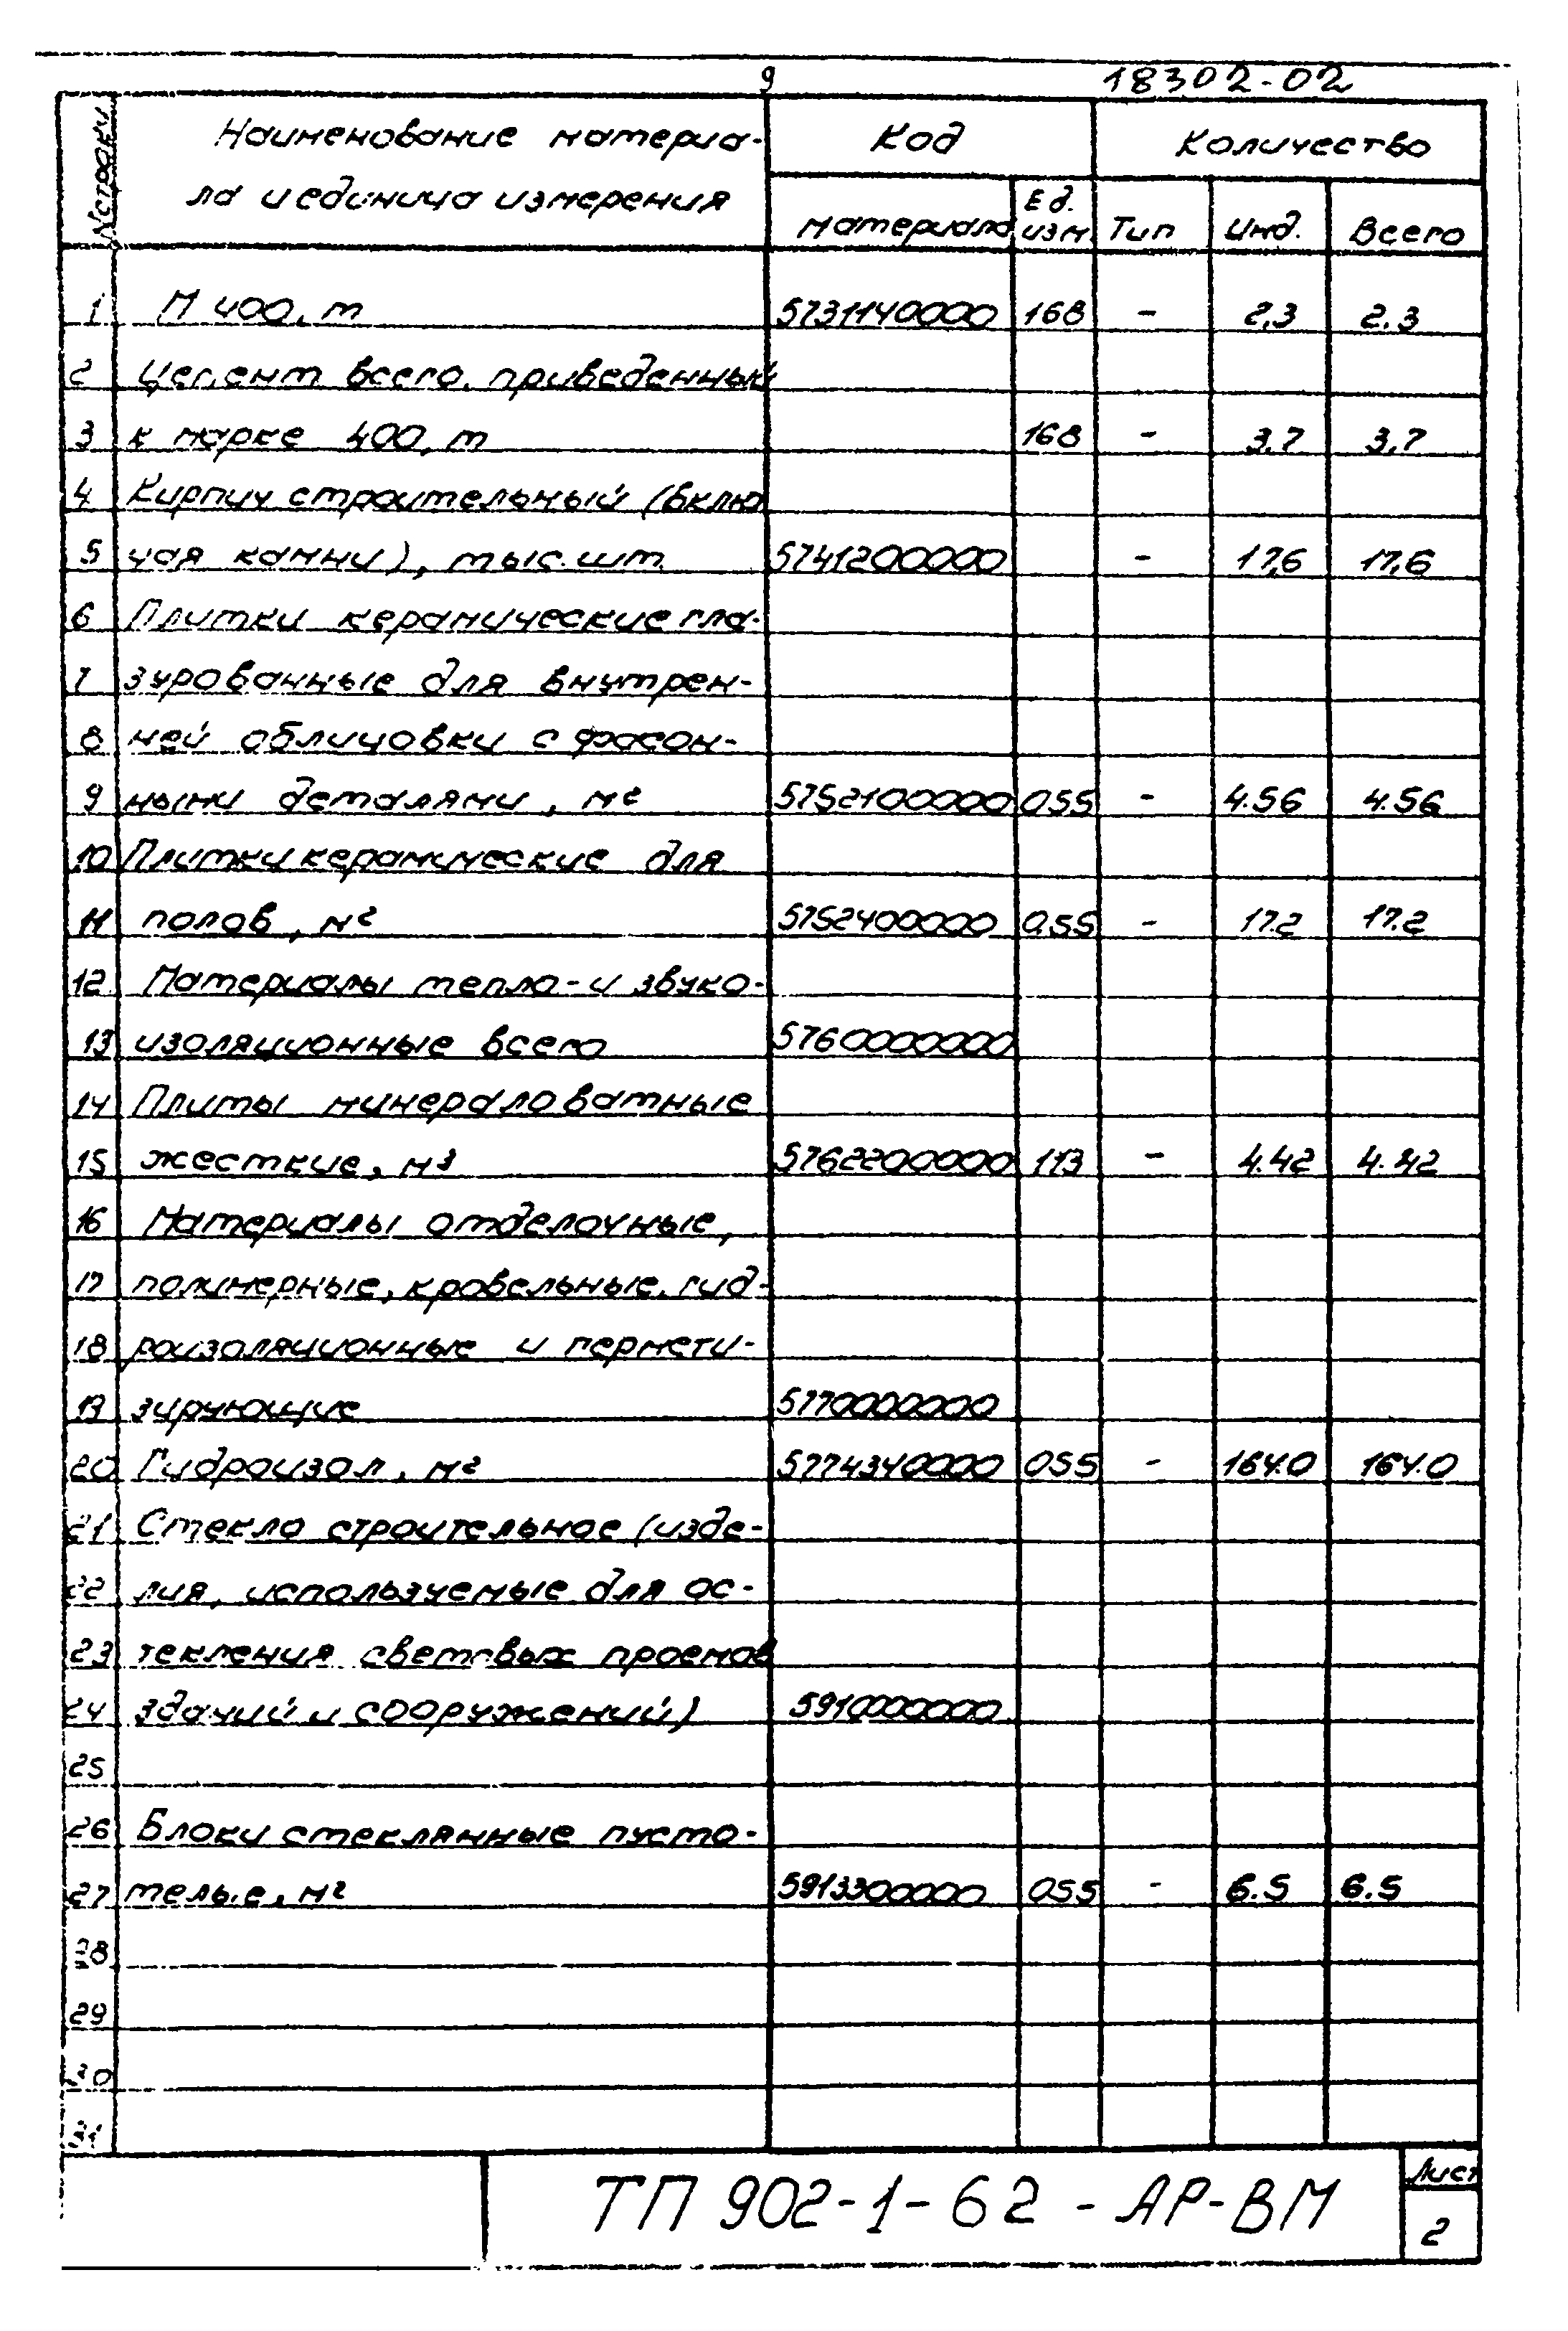 9 18302-02
№строки Наименование материа- Код Количество
ла и единица измерения материала Ед. изм. Тип Инд. Всего
1 М 400, т 5731140000 168 - 2,3 2.3
2 Цемент всего, приведенный
3 к марке 400, т 168 - 3,7 3,7
4 Кирпич строительный (вклю
5 чая камни), тыс. шт. 5741200000 - 17,6 17,6
6 Плитки керамические гла-
7 зурованные для внутрен-
8 ней облицовки с фасон-
9 ными деталями, м² 5752100000 055 - 4.56 4.56
10 Плитки керамические для
11 полов, м² 5752400000 055 - 17.2 17.2
12 Материалы тепло- и звуко-
13 изоляционные всего 5760000000
14 Плиты минераловатные
15 жесткие, м³ 5762200000 113 - 4.42 4.42
16 Материалы отделочные,
17 полимерные, кровельные, гид-
18 роизоляционные и гермети-
19 зирующие 5770000000
20 Гидроизол, м² 5774340000 055 - 164.0 164.0
21 Стекло строительное (изде-
22 лия, используемые для ос-
23 текления световых проемов
24 зданий и сооружений) 5910000000
25
26 Блоки стеклянные пусто-
27 телые, м² 5913300000 055 - 6.5 6.5
28
29
30
31
ТП 902-1-62 - АР-ВМ Лист
2